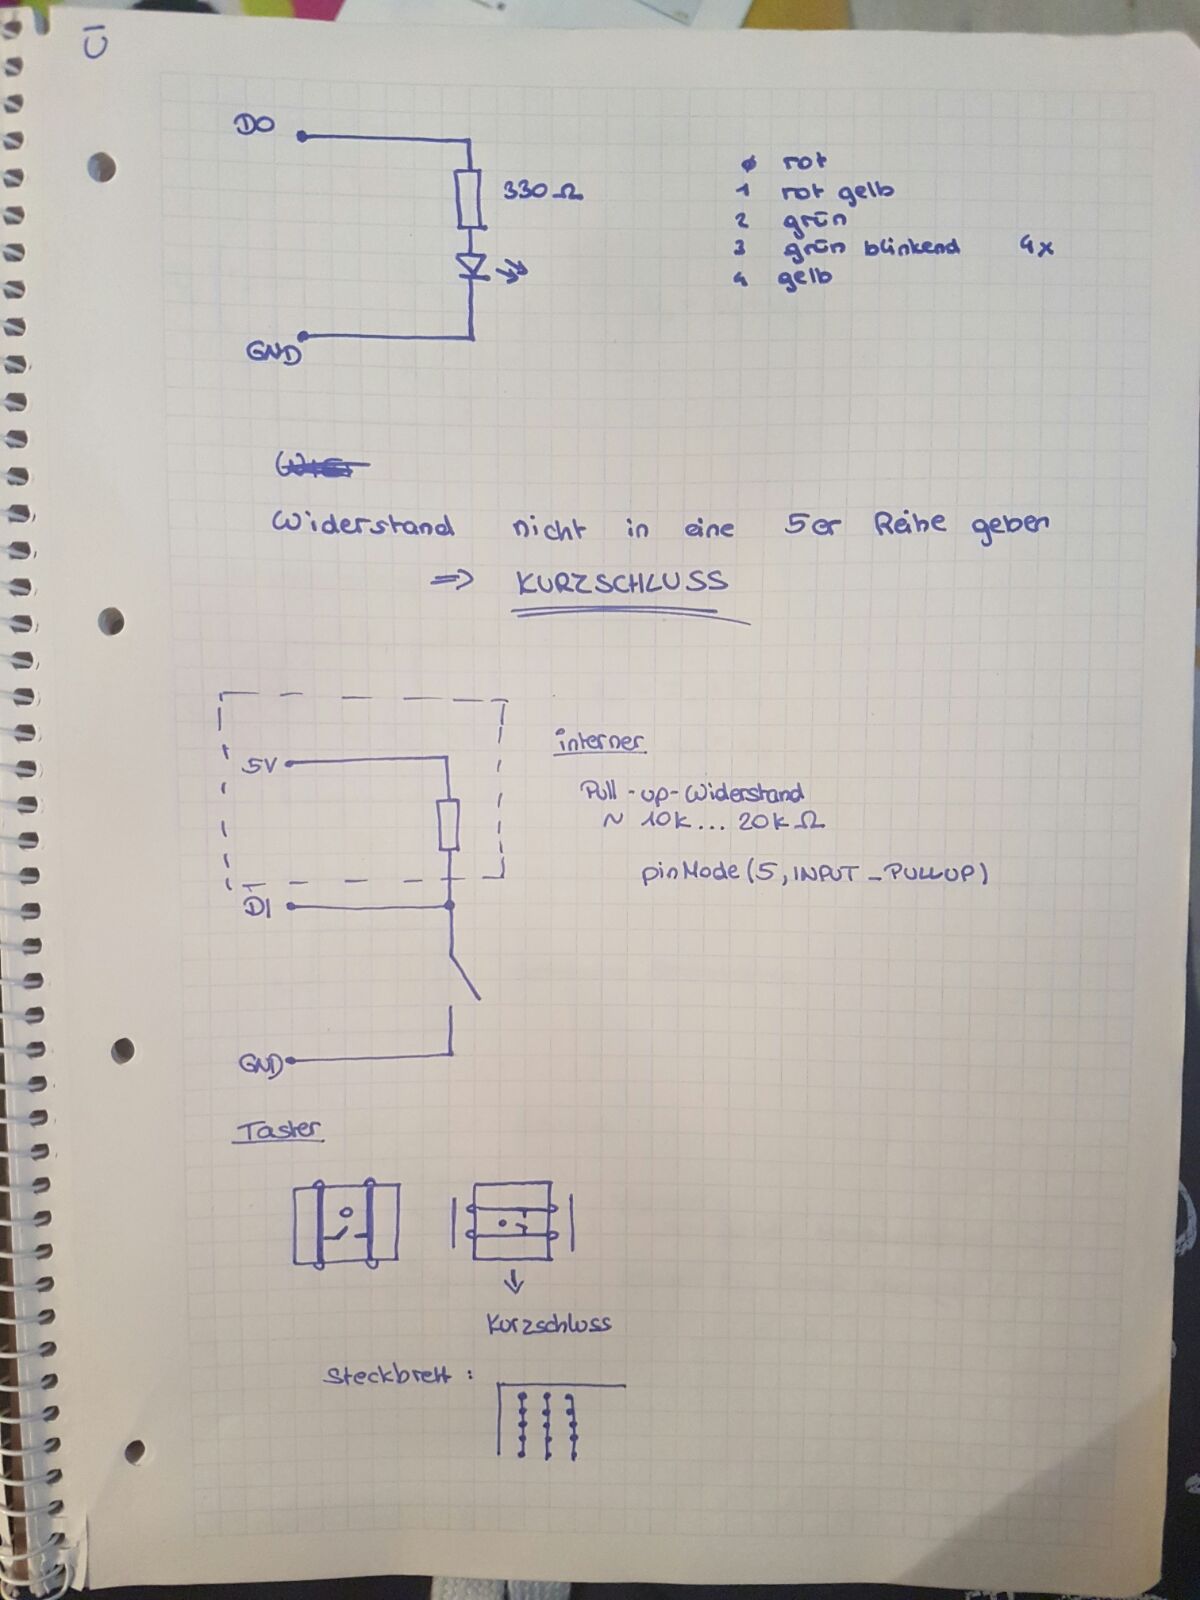 DO
330Ω
GND
0 rot
1 rot gelb
2 grün
3 grün blinkend 4x
4 gelb
Widerstand nicht in eine 5er Reihe geben
=> KURZSCHLUSS
5V
DI
GND
interner
Pull-up-Widerstand
~ 10k... 20kΩ
pinMode(5, INPUT_PULLUP)
Taster
↓
Kurzschluss
Steckbrett: